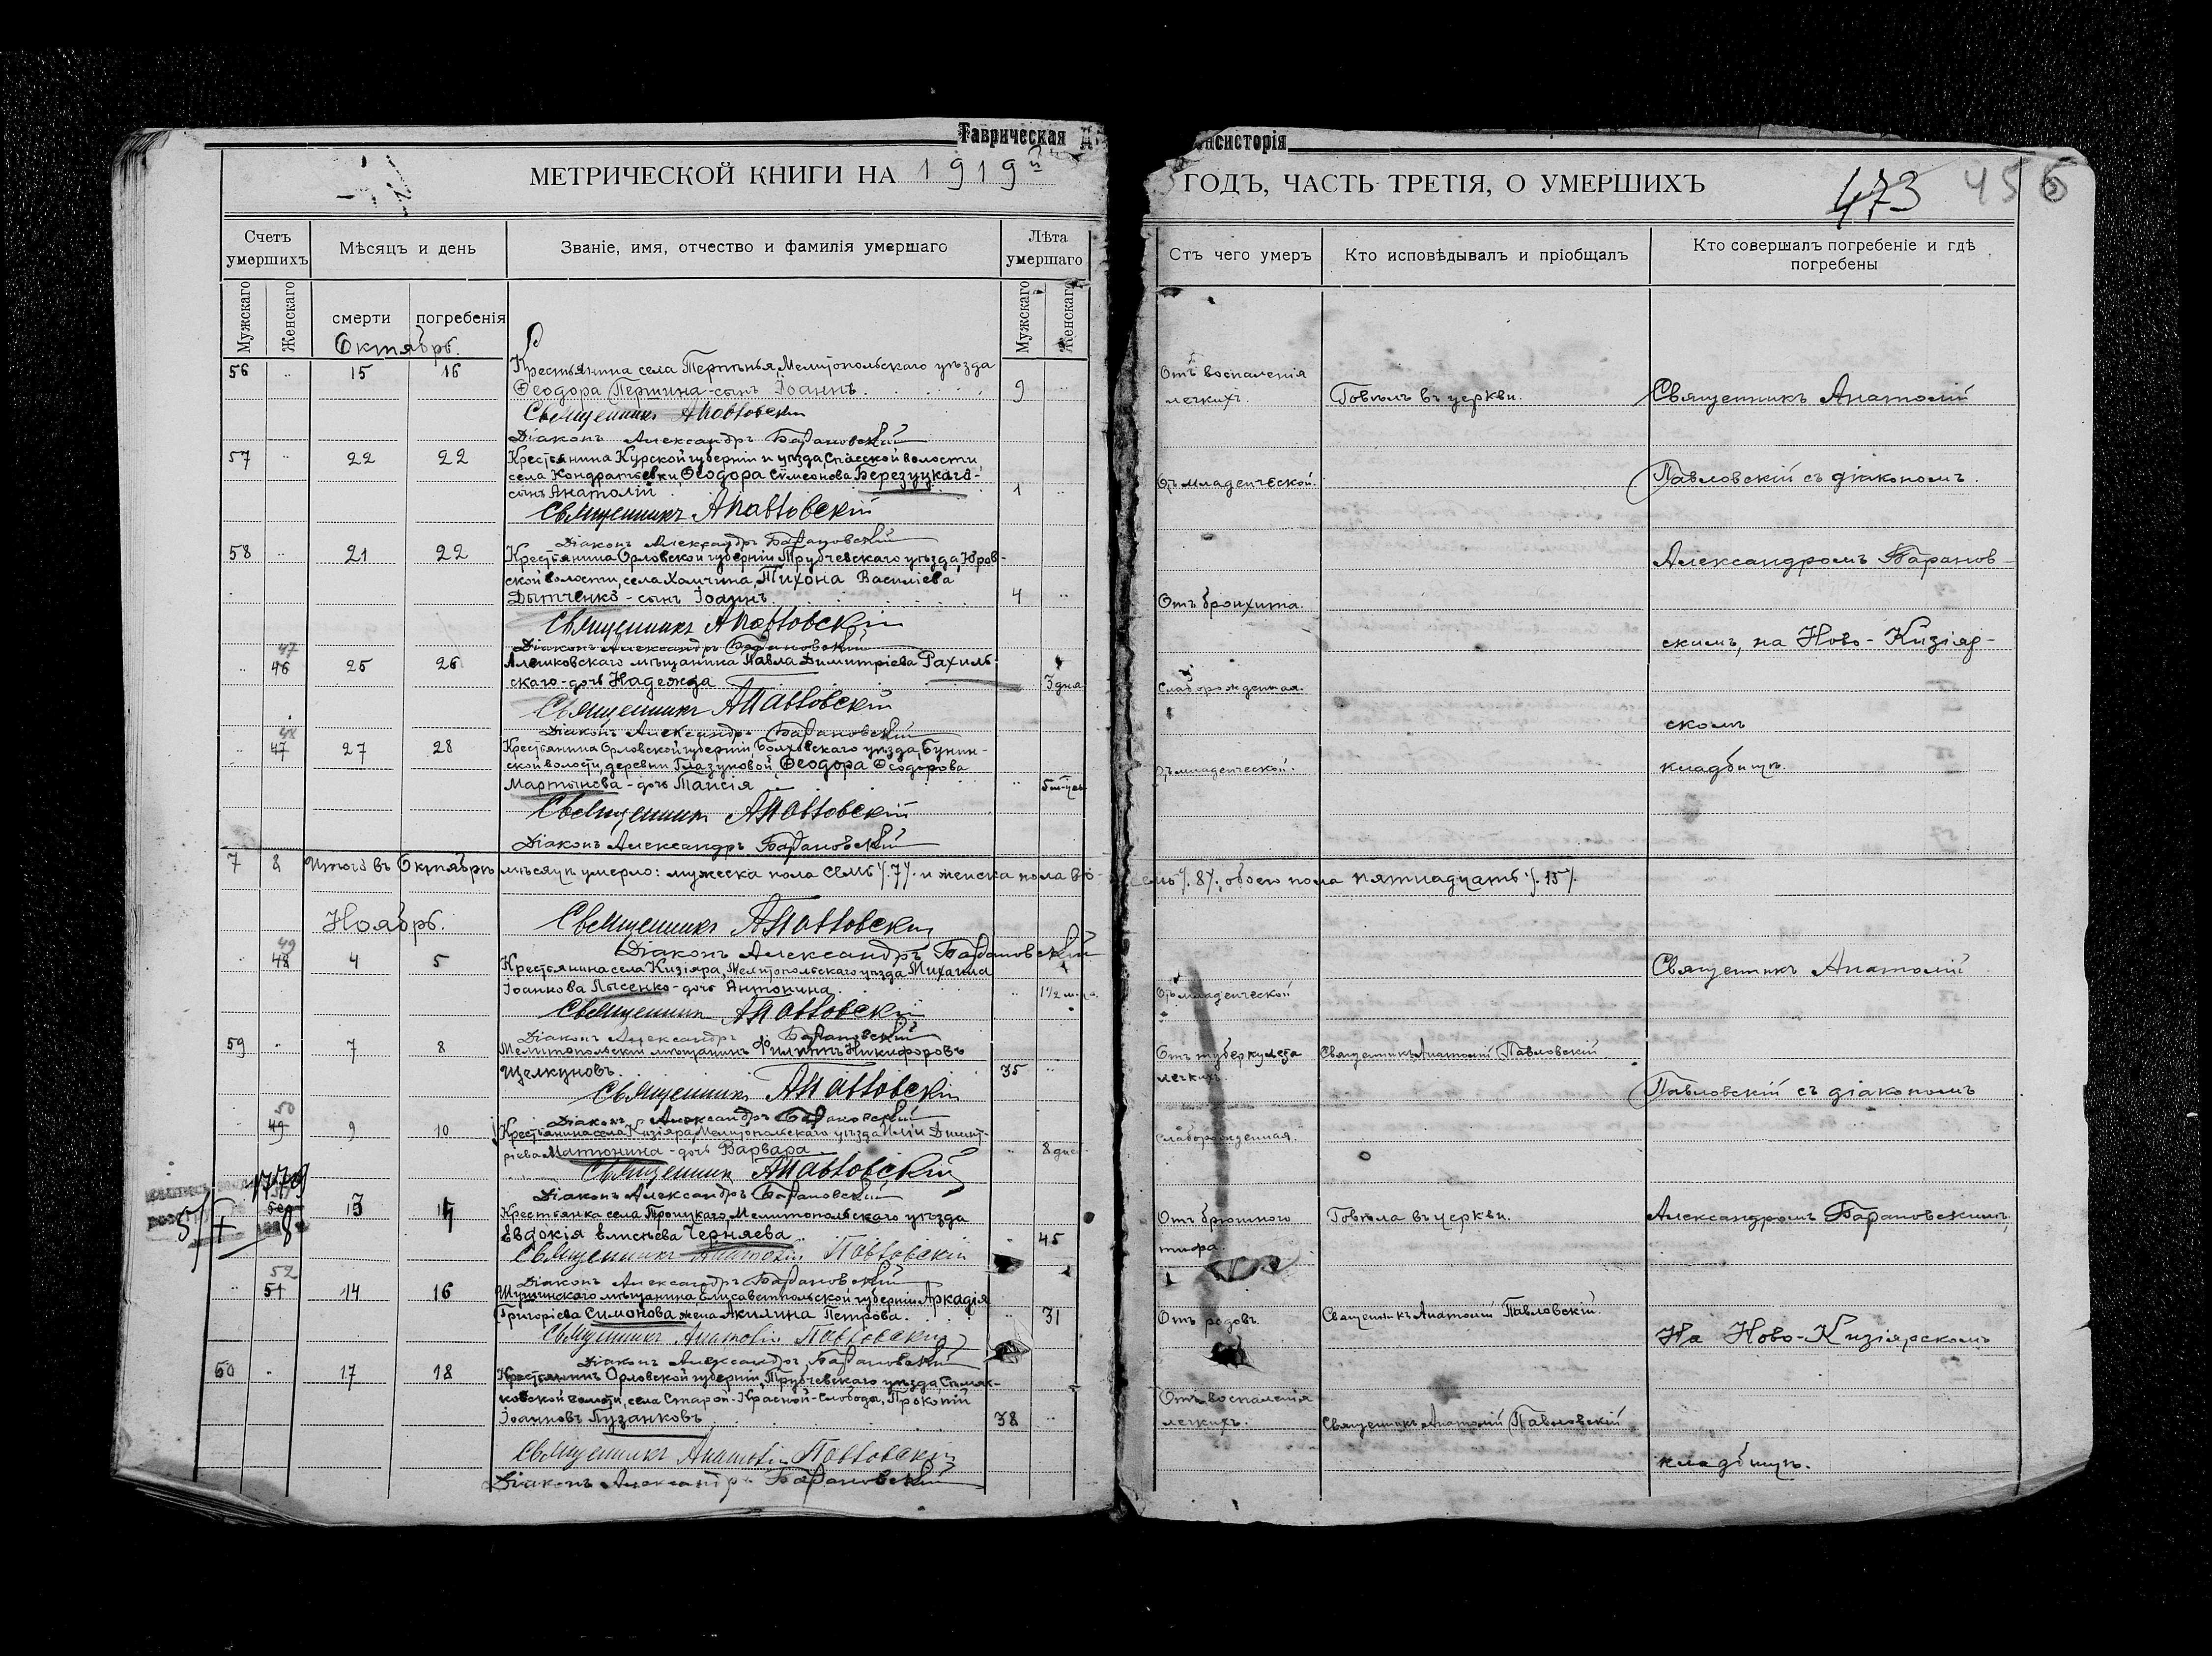 Таврическая
нсисторія
МЕТРИЧЕСКОЙ КНИГИ НА 1919й
ГОДЪ, ЧАСТЬ ТРЕТІЯ, О УМЕРШИХЪ
473 456
Счетъ умершихъ
Мѣсяцъ и день
Званіе, имя, отчество и фамилія умершаго
Лѣта умершаго
Отъ чего умеръ
Кто исповѣдывалъ и пріобщалъ
Кто совершалъ погребеніе и гдѣ погребены
Мужскаго
Женскаго
смерти
погребенія
Мужскаго
Женскаго
Октябрь.
56 15 16 Крестьянина села Мелитопольскаго уѣзда
Ѳеодора Першина-сынъ Іоаннъ. 9
Отъ воспаленія
легкихъ. Говѣлъ въ церкви. Священникъ Анатолій
Священникъ АПавловскій
Діаконъ Александръ Барановскій
57 22 22 Крестьянина Курской губерніи и уѣзда, Спасской волости
села Кондратьевки Ѳеодора Симеонова Березуцкаго-
сынъ Анатолій 1
Отъ младенческой. Павловскій съ діакономъ.
Священникъ АПавловскій
Діаконъ Александръ Барановскій
58 21 22 Крестьянина Орловской губерніи, Трубчевскаго уѣзда, Юров-
ской волости, села Халчина, Тихона Василіева
Дытченко - сынъ Іоаннъ. 4
Отъ бронхита. Александромъ Баранов-
Священникъ АПавловскій
Діаконъ Александръ Барановскій
47
46 25 26 Алешковскаго мѣщанина Павла Димитріева Рахиль-
скаго-дочь Надежда 3 дня
Слаборожденная. скимъ, на Ново-Кизіяр-
Священникъ АПавловскій
Діаконъ Александръ Барановскій
48
47 27 28 Крестьянина Орловской губерніи, Болховскаго уѣзда, Бунин-
ской волости, деревни Глазуновой, Ѳеодора Ѳеодорова
Мартынова - дочь Таисія
Отъ младенческой. скомъ
кладбищѣ.
Священникъ АПавловскій
Діаконъ Александръ Барановскій
7 8 Итого въ Октябрѣ мѣсяцѣ умерло: мужеска пола семь /.7/. и женска пола во-
семь /.8/., обоего пола пятнадцать /.15/.
Ноябрь.
Священникъ АПавловскій
Діаконъ Александръ Барановскій
49
48 4 5 Крестьянина села Кизіяра, Мелитопольскаго уѣзда Михаила
Іоаннова Лысенко-дочь Антонина. 1½
Отъ младенческой Священникъ Анатолій
Священникъ АПавловскій
Діаконъ Александръ Барановскій
59 7 8 Мелитопольскій мѣщанинъ Филиппъ Никифоровъ
Щелкуновъ. 35
Отъ туберкулеза
легкихъ. Священникъ Анатолій Павловскій.
Павловскій съ діакономъ
Священникъ АПавловскій
Діаконъ Александръ Барановскій
50
49 9 10 Крестьянина села Кизіяра, Мелитопольскаго уѣзда Иліи Димит-
ріева Матюнина - дочь Варвара 8 дне
Слаборожденная.
Священникъ АПавловскій
Діаконъ Александръ Барановскій
13 Крестьянка села Троицкаго, Мелитопольскаго уѣзда
Евдокія Елисѣева Черняева. 45
Отъ брюшного
тифа. Говѣла въ церкви. Александромъ Барановскимъ,
Священникъ Анатолій Павловскій
Діаконъ Александръ Барановскій
52
51 14 16 мѣщанина Елисаветпольской губерніи Аркадія
Григоріева Симонова жена Акилина Петрова. 31
Отъ родовъ. Священникъ Анатолій Павловскій.
На Ново-Кизіярскомъ
Священникъ Анатолій Павловскій
Діаконъ Александръ Барановскій
60 17 18 Крестьянинъ Орловской губерніи, Трубчевскаго уѣзда,
ковской волости, села Старой-Красной-Слободы, Прокопій
Іоанновъ Пузанковъ 38
Отъ воспаленія
легкихъ. Священникъ Анатолій Павловскій
кладбищѣ.
Священникъ Анатолій Павловскій
Діаконъ Александръ Барановскій